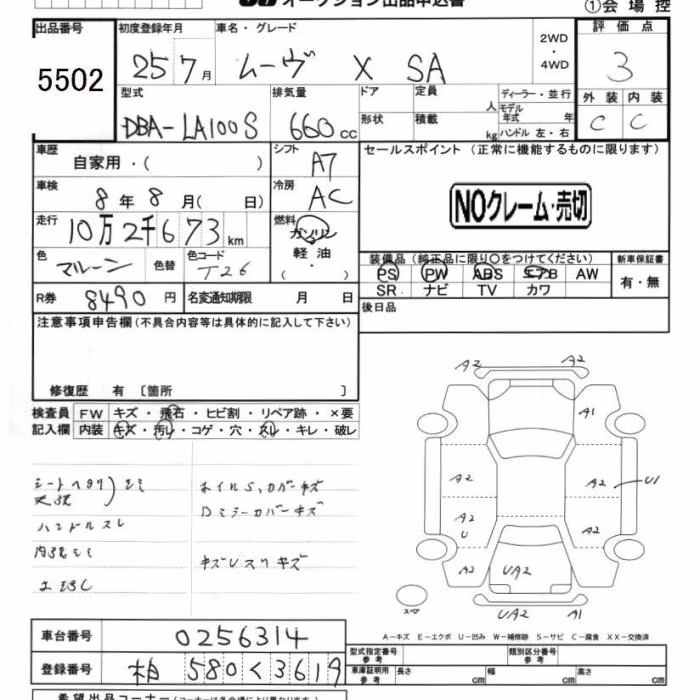 オークション出品申込書
①会場控
出品番号 初度登録年月 車名・グレード 評価点
5502 25 7月 ムーヴ X SA 2WD・4WD 3
型式 排気量 ドア 定員 人 ディーラー・並行 外装 内装
DBA-LA100S 660cc 形状 積載 kg モデル年式 年 C C
ハンドル 左・右
車歴 自家用・( ) シフト A7 セールスポイント (正常に機能するものに限ります)
車検 8年 8月( 日) 冷房 AC NOクレーム・売切
走行 10万2千673km 燃料 ガソリン
軽油
( ・ )
色 マルーン 色替 色コード T26 装備品 (純正品に限り○をつけてください) 新車保証書
PS PW ABS エアB AW 有・無
R券 8490円 名変通知期限 月 日 SR ナビ TV カワ
注意事項申告欄(不具合内容等は具体的に記入して下さい) 後日品
修復歴 有 〔箇所 〕
検査員 FW キズ・飛石・ヒビ割・リペア跡・×要
記入欄 内装 キズ・汚レ・コゲ・穴・スレ・キレ・破レ
シートヘタリ シミ
ホイルS,カバーキズ
Dミラーカバーキズ
ハンドルスレ
内張シミ
キズUスリキズ
A2 A2
A1
A2 A2 U1
A2
U A2
A2 UA2
スペア
UA2 A1
A-キズ E-エクボ U-凹み W-補修跡 S-サビ C-腐食 XX-交換済
車台番号 0256314
型式指定番号 参考 類別区分番号 参考
登録番号 柏 580 く 3619
車庫証明用 参考 長さ cm 幅 cm 高さ cm
希望出品コーナー